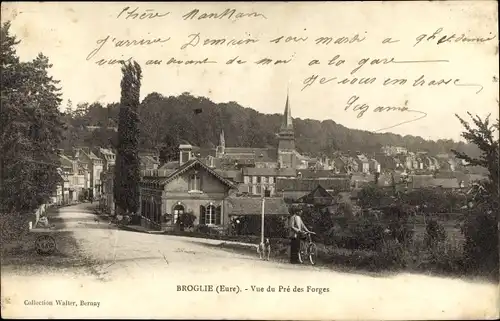 Chère Maman
J'arrive Demain soir mardi a 9h ½ demi
au devant de moi a la gare
je vous embrasse
Suzanne
BROGLIE (Eure). - Vue du Pré des Forges
Collection Walter, Bernay